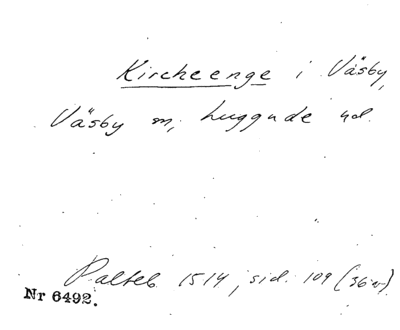 Kircheenge i Väsby,
Väsby sn, Luggude hd.
Palteb 1514, sid. 109 (36v).
Nr 6492.